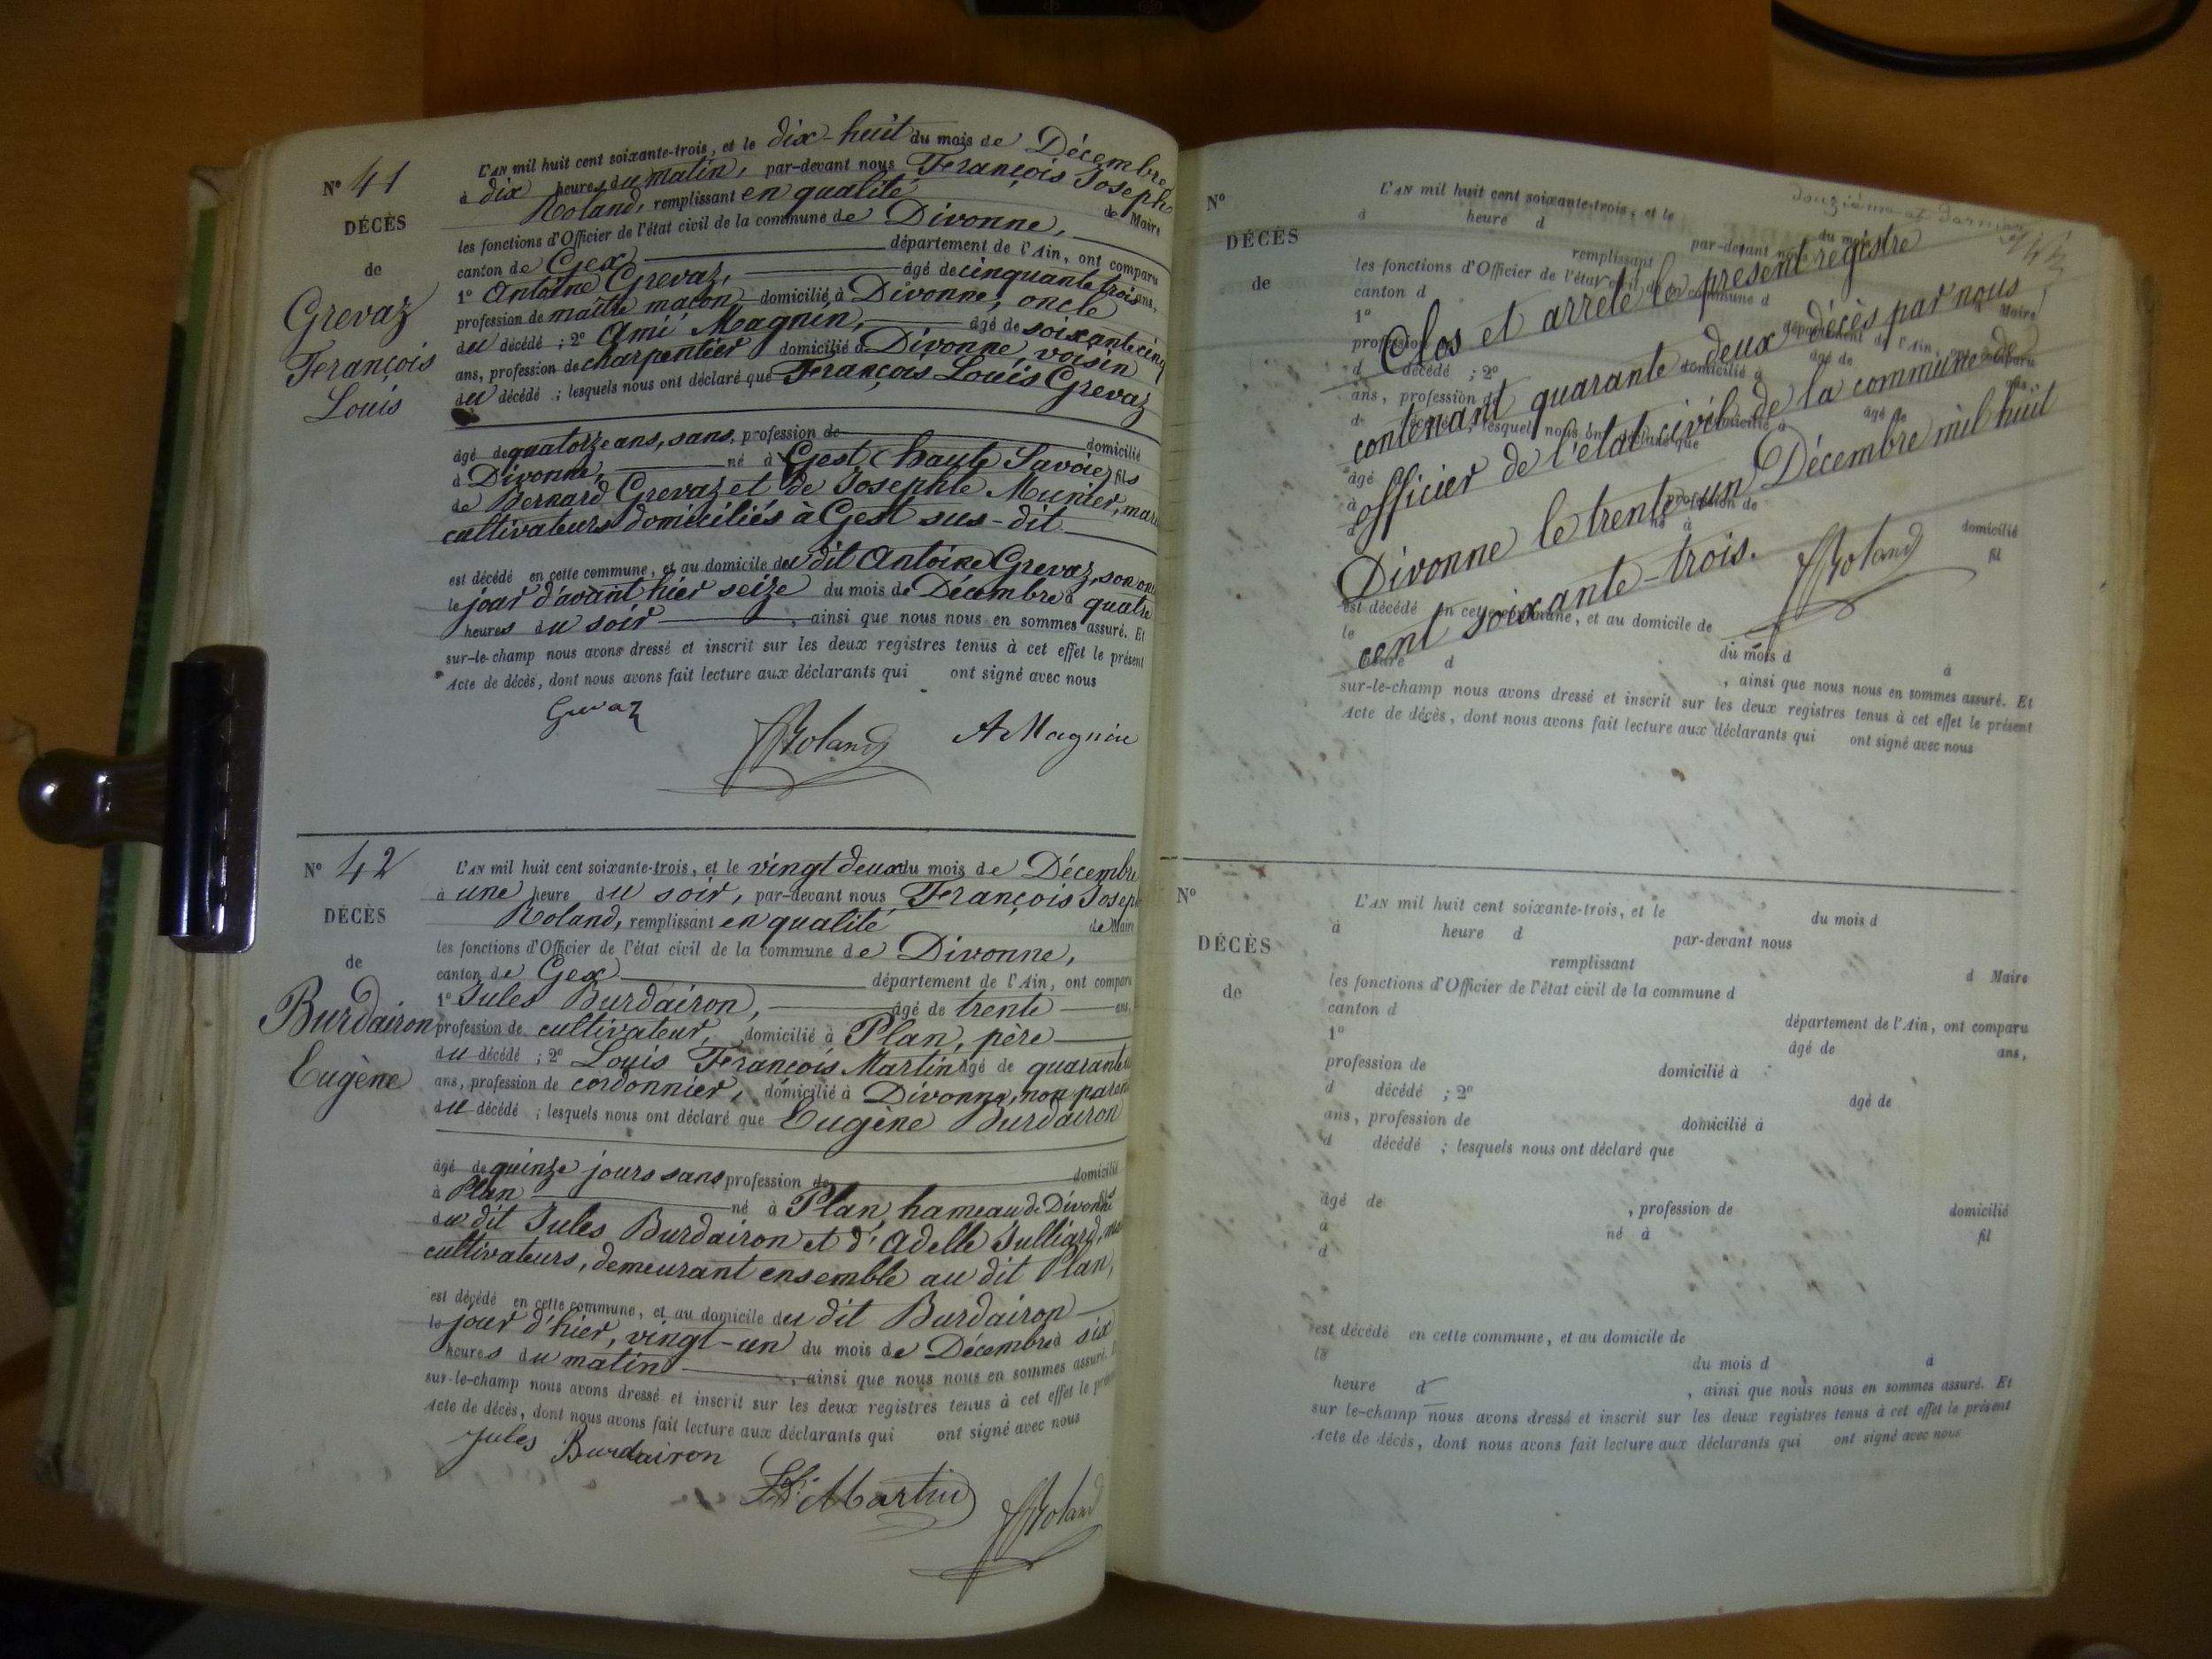 N° 41
DÉCÈS
de
Grevaz
François
Louis
L'AN mil huit cent soixante-trois, et le dix-huit du mois de Décembre
à dix heures du matin, par-devant nous François Joseph
Roland, remplissant en qualité de Maire
les fonctions d'Officier de l'état civil de la commune de Divonne,
canton de Gex département de l'Ain, ont comparu
1° Antoine Grevaz, âgé de cinquante trois ans,
profession de maître maçon domicilié à Divonne, oncle
du décédé ; 2° Ami Magnin, âgé de soixante cinq
ans, profession de charpentier domicilié à Divonne, voisin
du décédé ; lesquels nous ont déclaré que François Louis Grevaz
âgé de quatorze ans, sans, profession de domicilié
à Divonne, né à Gest haute Savoie, fils
de Bernard Grevaz et de Josephte Munier, mari
cultivateurs domiciliés à Gest sus-dit
est décédé en cette commune, et au domicile du dit Antoine Grevaz, son on
le jour d'avant hier seize du mois de Décembre à quatre
heures du soir , ainsi que nous nous en sommes assuré. Et
sur-le-champ nous avons dressé et inscrit sur les deux registres tenus à cet effet le présent
Acte de décès, dont nous avons fait lecture aux déclarants qui ont signé avec nous
Grevaz
FJRoland
A Magnin
N° 42
DÉCÈS
de
Burdairon
Eugène
L'AN mil huit cent soixante-trois, et le vingt deux du mois de Décembre
à une heure du soir, par-devant nous François Joseph
Roland, remplissant en qualité de Maire
les fonctions d'Officier de l'état civil de la commune de Divonne,
canton de Gex département de l'Ain, ont comparu
1° Jules Burdairon, âgé de trente ans,
profession de cultivateur, domicilié à Plan, père
du décédé ; 2° Louis François Martin âgé de quarante
ans, profession de cordonnier, domicilié à Divonne, non parent
du décédé ; lesquels nous ont déclaré que Eugène Burdairon
âgé de quinze jours sans profession de domicilié
à Plan né à Plan, hameau de Divonne fils
du dit Jules Burdairon et d'Adelle Julliard,
cultivateurs, demeurant ensemble au dit Plan,
est décédé en cette commune, et au domicile du dit Burdairon
le jour d'hier, vingt-un du mois de Décembre à six
heures du matin , ainsi que nous nous en sommes assuré.
sur-le-champ nous avons dressé et inscrit sur les deux registres tenus à cet effet le présent
Acte de décès, dont nous avons fait lecture aux déclarants qui ont signé avec nous
Jules Burdairon
Martin
FJRoland
douzième et dernier
N°
DÉCÈS
de
L'AN mil huit cent soixante-trois, et le du mois
à heure d par-devant nous
remplissant Maire
les fonctions d'Officier de l'état civil de la commune d
canton d département de l'Ain, ont comparu
1° âgé de ans,
profession domicilié à
d décédé ; 2° âgé de
ans, profession d domicilié à
d décédé ; lesquels nous ont déclaré que
âgé d profession de domicilié
à né à fil
Clos et arrêté le present registre
contenant quarante deux décès par nous
officier de l'état civil de la commune de
Divonne le trente-un Décembre mil huit
cent soixante-trois. FJRoland
est décédé en cette commune, et au domicile de
le du mois d à
heure d , ainsi que nous nous en sommes assuré. Et
sur-le-champ nous avons dressé et inscrit sur les deux registres tenus à cet effet le présent
Acte de décès, dont nous avons fait lecture aux déclarants qui ont signé avec nous
N°
DÉCÈS
de
L'AN mil huit cent soixante-trois, et le du mois d
à heure d par-devant nous
remplissant d Maire
les fonctions d'Officier de l'état civil de la commune d
canton d département de l'Ain, ont comparu
1° âgé de ans,
profession de domicilié à
d décédé ; 2° âgé de
ans, profession de domicilié à
d décédé ; lesquels nous ont déclaré que
âgé de , profession de domicilié
à né à fil
d
est décédé en cette commune, et au domicile de
le du mois d à
heure d , ainsi que nous nous en sommes assuré. Et
sur le-champ nous avons dressé et inscrit sur les deux registres tenus à cet effet le présent
Acte de décès, dont nous avons fait lecture aux déclarants qui ont signé avec nous